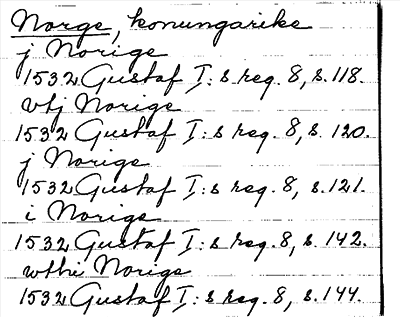 Norge, konungarike
j Norige
1532 Gustaf I:s reg. 8, s. 118.
vtj Norige
1532 Gustaf I:s reg. 8, s. 120.
j Norige
1532 Gustaf I:s reg. 8, s. 121.
i Norige
1532 Gustaf I:s reg. 8, s. 142.
wthi Norige
1532 Gustaf I:s reg. 8, s. 144.